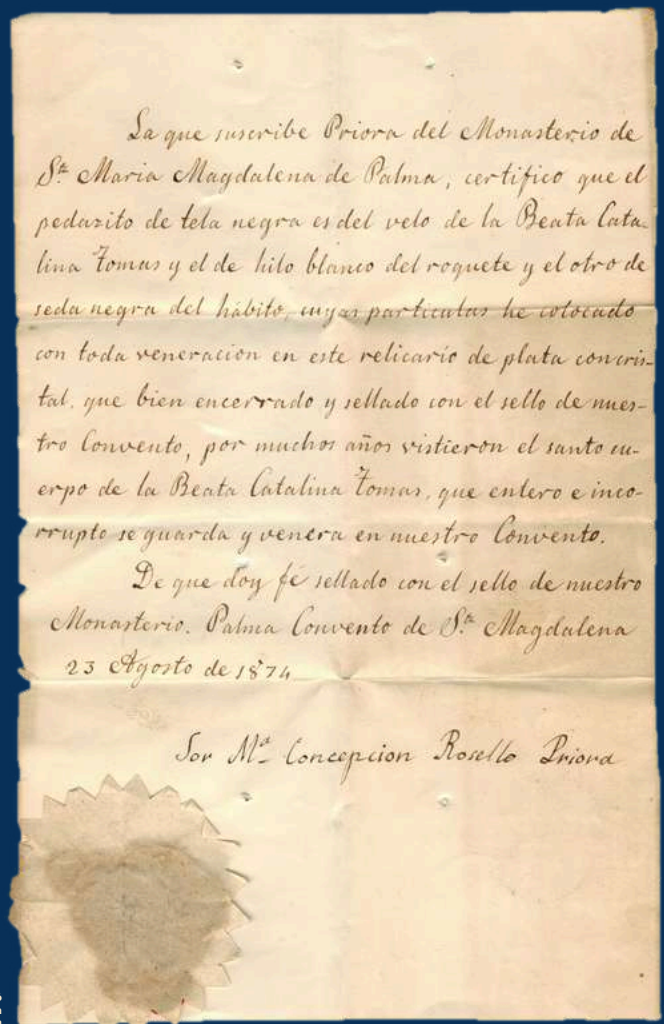 La que suscribe Priora del Monasterio de
Sta Maria Magdalena de Palma, certifico que el
pedazito de tela negra es del velo de la Beata Cata-
lina Tomas y el de hilo blanco del roquete y el otro de
seda negra del hábito, cuyas particulas he colocado
con toda veneracion en este relicario de plata con cris-
tal, que bien encerrado y sellado con el sello de nues-
tro Convento, por muchos años vistieron el santo cu-
erpo de la Beata Catalina Tomas, que entero e inco-
rrupto se guarda y venera en nuestro Convento.
De que doy fé sellado con el sello de nuestro
Monasterio. Palma Convento de Sta Magdalena
23 Agosto de 1874
Sor Ma Concepcion Rosello Priora